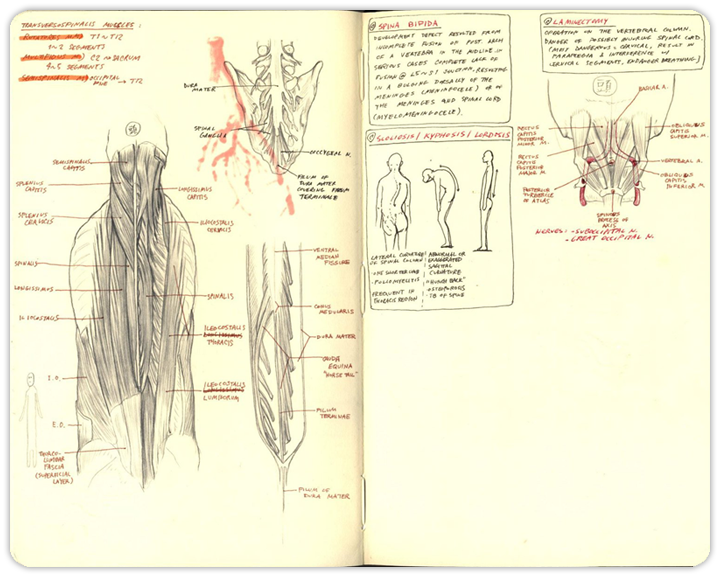 TRANSVERSOSPINALIS MUSCLES :
T1 ~ T12
1~2 SEGMENTS
C2 ~ SACRUM
4~5 SEGMENTS
OCCIPITAL
→ T12
SEMISPINALIS
CAPITIS
SPLENIUS
CAPITIS
SPLENIUS
CERVICIS
SPINALIS
LONGISSIMUS
ILIOCOSTALIS
I.O.
E.O.
THORCO-
LUMBAR
FASCIA
(SUPERFICIAL
LAYER)
LONGISSIMUS
CAPITIS
ILIOCOSTALIS
CERVICIS
SPINALIS
ILEOCOSTALIS
THORACIS
ILEOCOSTALIS
LUMBORUM
DURA
MATER
SPINAL
GANGLIA
COCCYGEAL N.
FILUM OF
DURA MATER
COVERING FILUM
TERMINALE
VENTRAL
MEDIAN
FISSURE
CONUS
MEDULARIS
DURA MATER
CAUDA
EQUINA
"HORSE TAIL"
FILUM
TERMINAE
FILUM OF
DURA MATER
SPINA BIFIDA
DEVELOPMENT DEFECT RESULTED FROM
INCOMPLETE FUSION OF POST. ARCH
OF A VERTEBRA IN THE MIDLINE. IN
SERIOUS CASES COMPLETE LACK OF
FUSION @ L5~S1 JUNCTION, RESULTING
IN A BULGING DORSALLY OF THE
MENINGES (MENINGOCELE) OR OF
THE MENINGES AND SPINAL CORD
(MYELOMENINGOCELE).
SCOLIOSIS / KYPHOSIS / LORDOSIS
LATERAL CURVATURE
OF SPINAL COLUMN
- ONE SHORTER LIMB
- POLIOMYELITIS
FREQUENT IN
THORACIC REGION
ABNORMAL OR
EXAGGERATED
SAGITAL
CURVATURE
"HUNCH BACK"
- OSTEOPOROSIS
- TB OF SPINE
LAMINECTOMY
OPERATION ON THE VERTEBRAL COLUMN.
DANGER OF POSSIBLY INJURING SPINAL CORD.
(MOST DANGEROUS = CERVICAL, RESULT IN
PARAPLEGIA & INTERFERENCE W/
CERVICAL SEGMENTS, ENDANGER BREATHING)
BASILAR A.
RECTUS
CAPITIS
POSTERIOR
MINOR M.
RECTUS
CAPITIS
POSTERIOR
MAJOR M.
POSTERIOR
TUBERCLE
OF ATLAS
OBLIQUUS
CAPITIS
SUPERIOR M.
VERTEBRAL A.
OBLIQUUS
CAPITIS
SUPERIOR M.
SPINOUS
PROCESS OF
AXIS
NERVES : - SUBOCCIPITAL N.
- GREAT OCCIPITAL N.